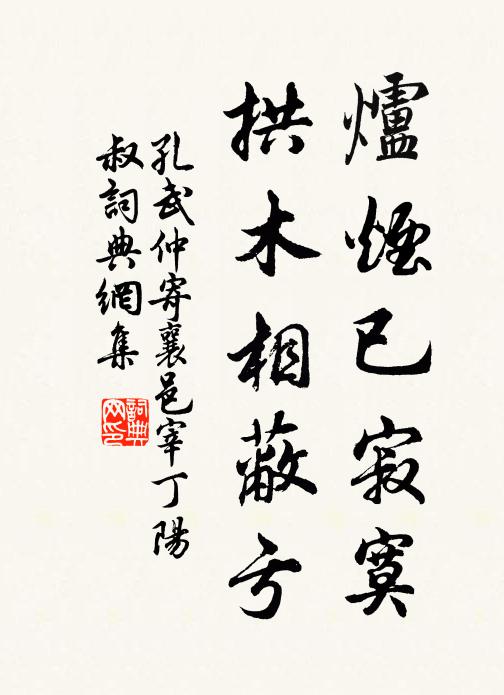 爐煙已寂寞
拱木相蔽亏
孔武仲寄襄邑宰丁陽
叔詞典網集
詞典
网印